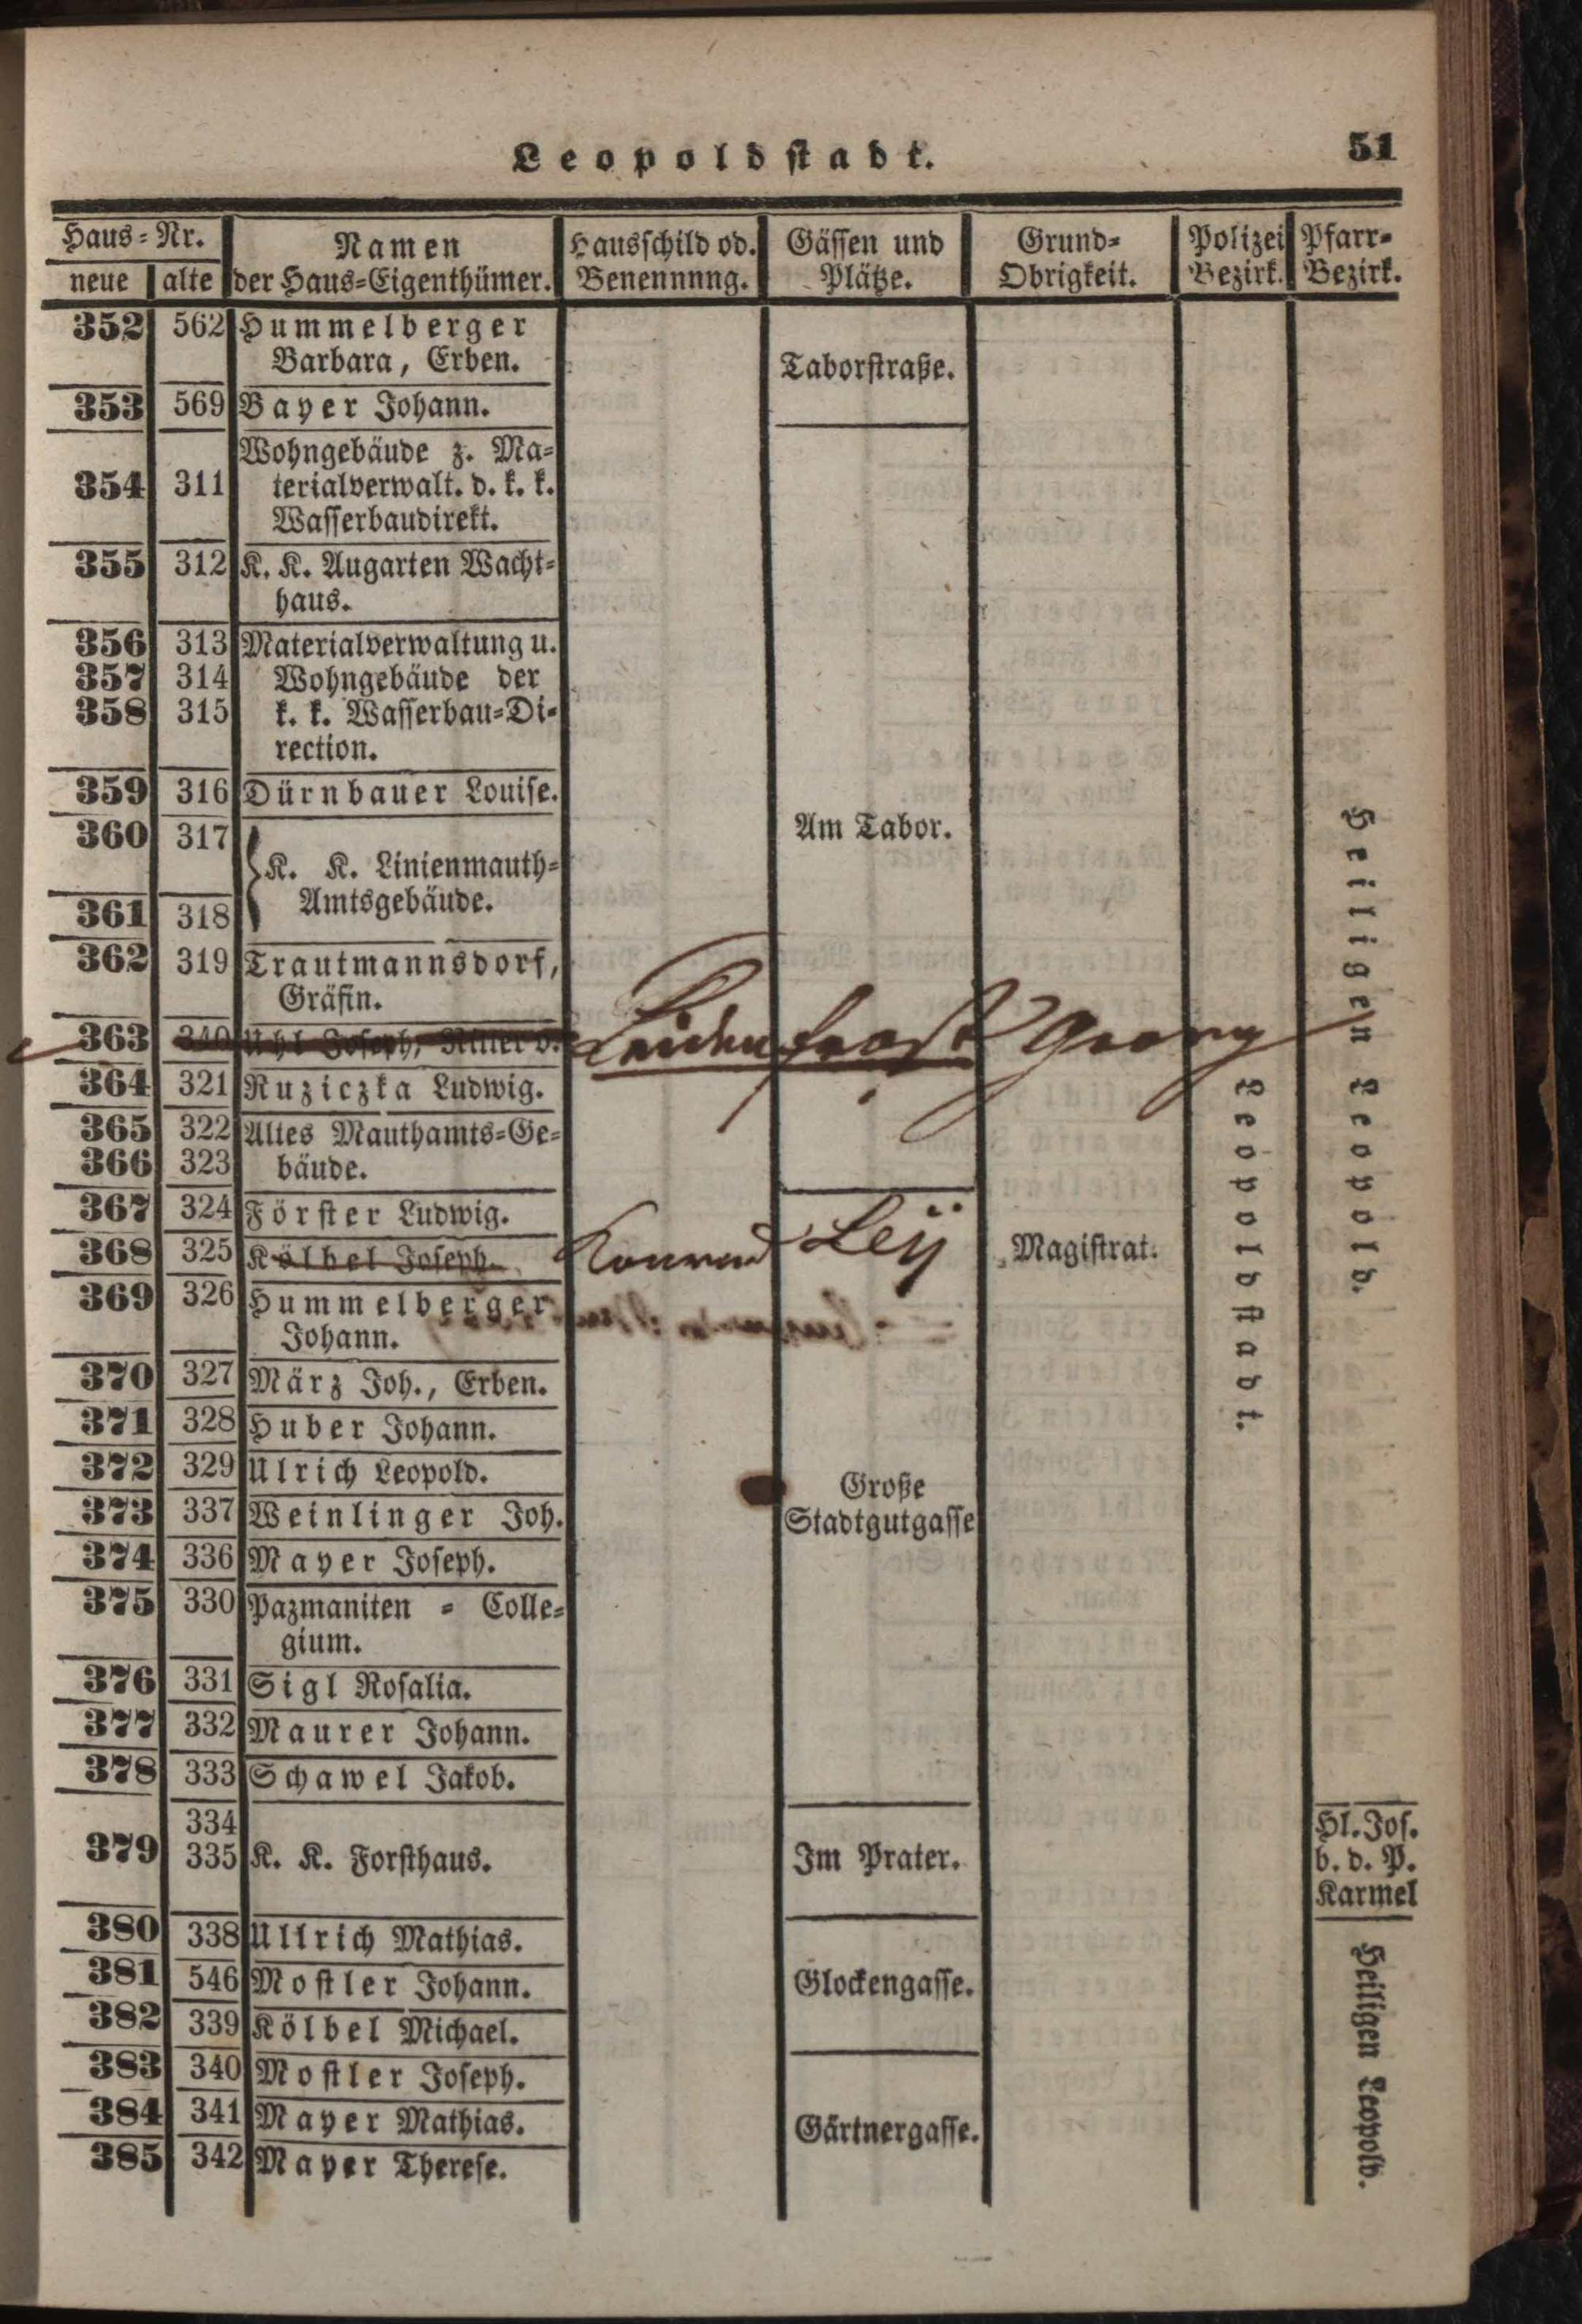 Leopoldstadt. 51
Haus-Nr. Namen Hausschild od. Gässen und Grund- Polizei Pfarr-
neue alte der Haus-Eigenthümer. Benennnng. Plätze. Obrigkeit. Bezirk. Bezirk.
352 562 Hummelberger
Barbara, Erben.
Taborstraße.
353 569 Bayer Johann.
Wohngebäude z. Ma-
354 311 terialverwalt. d. k. k.
Wasserbaudirekt.
355 312 K. K. Augarten Wacht-
haus.
356 313 Materialverwaltung u.
357 314 Wohngebäude der
358 315 k. k. Wasserbau-Di-
rection.
359 316 Dürnbauer Louise.
Am Tabor.
360 317
K. K. Linienmauth-
Amtsgebäude.
361 318
362 319 Trautmannsdorf,
Gräfin.
363 Uhl Joseph, Ritter v. Leidenfrost Georg
364 321 Ruziczka Ludwig.
365 322 Altes Mauthamts-Ge-
366 323 bäude.
367 324 Förster Ludwig.
368 325 Kölbel Joseph. Konrad Leÿ Magistrat.
369 326 Hummelberger
Johann.
370 327 März Joh., Erben.
371 328 Huber Johann.
372 329 Ulrich Leopold.
Große
Stadtgutgasse
373 337 Weinlinger Joh.
374 336 Mayer Joseph.
375 330 Pazmaniten - Colle-
gium.
376 331 Sigl Rosalia.
377 332 Maurer Johann.
378 333 Schawel Jakob.
Leopoldstadt.
Heiligen Leopold.
334 Hl. Jos.
379 335 K. K. Forsthaus. Im Prater. b. d. P.
Karmel
380 338 Ullrich Mathias.
381 546 Mostler Johann. Glockengasse.
382 339 Kölbel Michael.
383 340 Mostler Joseph.
384 341 Mayer Mathias. Gärtnergasse.
385 342 Mayer Therese.
Heiligen Leopold.